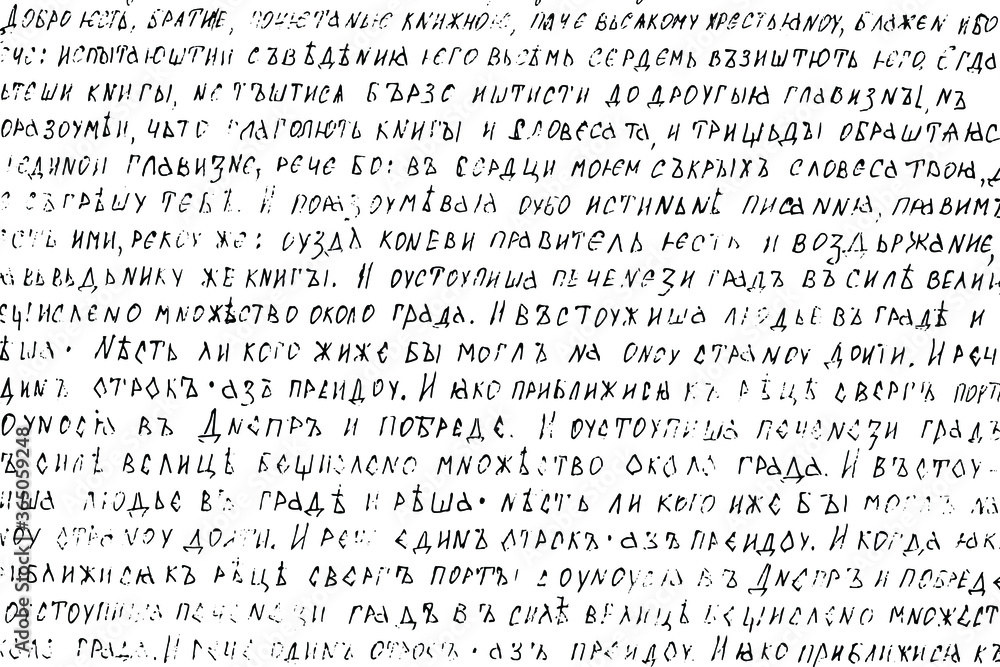 Добро ѥсть, братиѥ, почетаньѥ книжноѥ, паче вьсакому хрестьꙗноу, блажен ибо
сѵе: испытаюштии съвѣдѣниꙗ ѥго вьсѣмь сердемь възиштють ѥго. Єгда
ьтеши книгы, не тъштисѧ бързо иштисти до дроугыꙗ главизны, нъ
оразоумѣи, чьто глаголють книгы и словеса та, и тришьды обраштаꙗс
ѥдинои главизне, рече бо: въ сердци моѥм съкрыхъ словеса твоꙗ, д
съгрѣшу тебѣ. И поразоумѣваꙗ оубо истиньнѣ писанниꙗ, правимъ
есть ими, рекоу же: оузда коневи правитель ѥсть и воздьржание,
правьдьнику же книгы. И оустоупиша печенези градъ въ силѣ велии
ецислено множѣство около града. И въстоужиша людье въ градѣ и
ѣша· Нѣсть ли кого жиже бы моглъ на оноу страноу доити. И реч
динъ отрокъ·азъ преидоу. И ꙗко приближисꙗ къ рѣцѣ свергъ порт
оуносиꙗ въ Днепръ и побреде. И оустоупиша печенези градъ
ъ силѣ велицѣ бецислено множѣство около града. И въстоу-
иша людье въ градѣ и рѣша· нѣсть ли кого иже бы моглъ на
ноу страноу доити. И рече единъ отрокъ·азъ преидоу. И когда ꙗк
иближисꙗ къ рѣцѣ свергъ порты соуноусиꙗ въ Днепръ и побреде
оустоупиша печенези градъ въ силѣ велицѣ бецислено множест
коло града. И рече одинъ отрокъ·азъ преидоу. И ꙗко приближисꙗ къ
Adobe Stock | #365059248